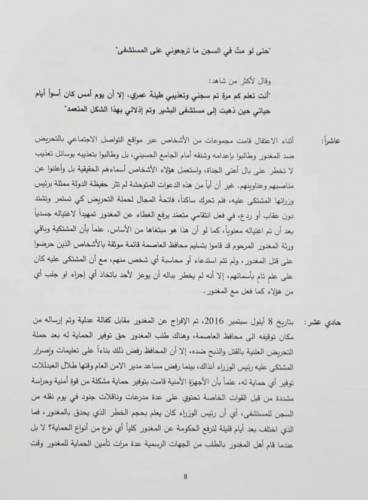 "حتى لو متّ في السجن ما ترجعوني على المستشفى"
وقال لأكثر من شاهد:
"أنت تعلم كم مرة تم سجني وتعذيبي طيلة عمري، إلا أن يوم أمس كان أسوأ أيام
حياتي حين ذهبت إلى مستشفى البشير وتم إذلالي بهذا الشكل المتعمد"
عاشراً: أثناء الاعتقال قامت مجموعات من الأشخاص عبر مواقع التواصل الاجتماعي بالتحريض
ضد المغدور وطالبوا بإعدامه وشنقه أمام الجامع الحسيني، بل وطالبوا بتعذيبه بوسائل تعذيب
لا تخطر على بال أعتى الجناة، واستعمل هؤلاء الأشخاص أسماءهم الحقيقية بل وأعلنوا عن
مناصبهم وعناوينهم. غير أن أياً من هذه الدعوات المتوحشة لم تثر حفيظة الدولة ممثلة برئيس
وزرائها المشتكى عليه، فلم تحرك ساكناً، فاتحة المجال لحملة التحريض كي تستمر وتشتد
دون عقاب أو ردع، في فعل انتقامي متعمد برفع الغطاء عن المغدور تمهيداً لاغتياله جسدياً
بعد أن تم اغتياله معنوياً، كما لو أن هذا هو مبتغاها من الأساس. علماً بأن المشتكية وباقي
ورثة المغدور المرحوم قد قاموا بتسليم محافظ العاصمة قائمة موثقة بالأشخاص الذين حرضوا
على قتل المغدور، ولم تتم استدعاء أو محاسبة أي شخص منهم، مع أن المشتكى عليه كان
على علم تام بأسمائهم، إلا أنه لم يخطر بباله أن يوعز لأحد باتخاذ أي إجراء او جلب أي
من هؤلاء كما فعل مع المغدور.
حادي عشر: بتاريخ 8 أيلول سبتمبر 2016، تم الإفراج عن المغدور مقابل كفالة عدلية وتم إرساله من
مكان توقيفه الى محافظ العاصمة، وهناك طلب المغدور حق توفير الحماية له بعد حملة
التحريض العلنية بالقتل والذبح ضده، إلا أن المحافظ رفض ذلك بناءً على تعليمات وإصرار
المشتكى عليه رئيس الوزراء آنذاك، بينما رفض مساعد مدير الامن العام وقتها طلال العبداللات
توفير أي حماية له، علماً بأن الأجهزة الأمنية قامت بتوفير حماية مشكلة من قوة أمنية وحراسة
مشددة من قبل القوات الخاصة تحتوي على عدة مدرعات وناقلات جنود في يوم نقله من
السجن للمستشفى، أي أن رئيس الوزراء كان يعلم بحجم الخطر الذي يحدق بالمغدور، فما
الذي اختلف بعد أيام قليلة لترفع الحكومة عن المغدور كلياً أي نوع من أنواع الحماية؟ لا بل
عندما قام أهل المغدور بالطلب من الجهات الرسمية عدة مرات تأمين الحماية للمغدور وقت
8